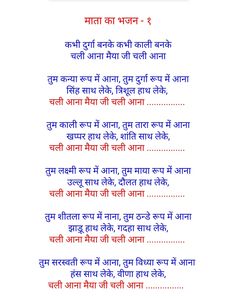 माता का भजन - १
कभी दुर्गा बनके कभी काली बनके
चली आना मैया जी चली आना
तुम कन्या रूप में आना, तुम दुर्गा रूप में आना
सिंह साथ लेके, त्रिशूल हाथ लेके,
चली आना मैया जी चली आना .................
तुम काली रूप में आना, तुम तारा रूप में आना
खप्पर हाथ लेके, शांति साथ लेके,
चली आना मैया जी चली आना .................
तुम लक्ष्मी रूप में आना, तुम माया रूप में आना
उल्लू साथ लेके, दौलत हाथ लेके,
चली आना मैया जी चली आना .................
तुम शीतला रूप में नाना, तुम ठन्डे रूप में आना
झाडू हाथ लेके, गदहा साथ लेके,
चली आना मैया जी चली आना .................
तुम सरस्वती रूप में आना, तुम विध्या रूप में आना
हंस साथ लेके, वीणा हाथ लेके,
चली आना मैया जी चली आना .................